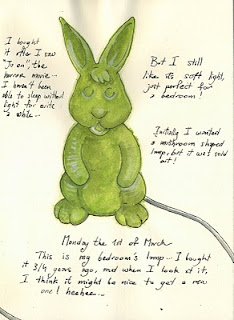 I bought
it after I saw
"Ju on", the
horror movie...
I haven't been
able to sleep without
light for quite
a while...
But I still
like its soft light,
just perfect for
a bedroom!
Initially I wanted
a mushroom shaped
lamp, but it was sold
out!
Monday the 1st of March
This is my bedroom's lamp... I bought
it 3/4 years ago, and when I look at it,
I think it might be nice to get a new
one! heehee...